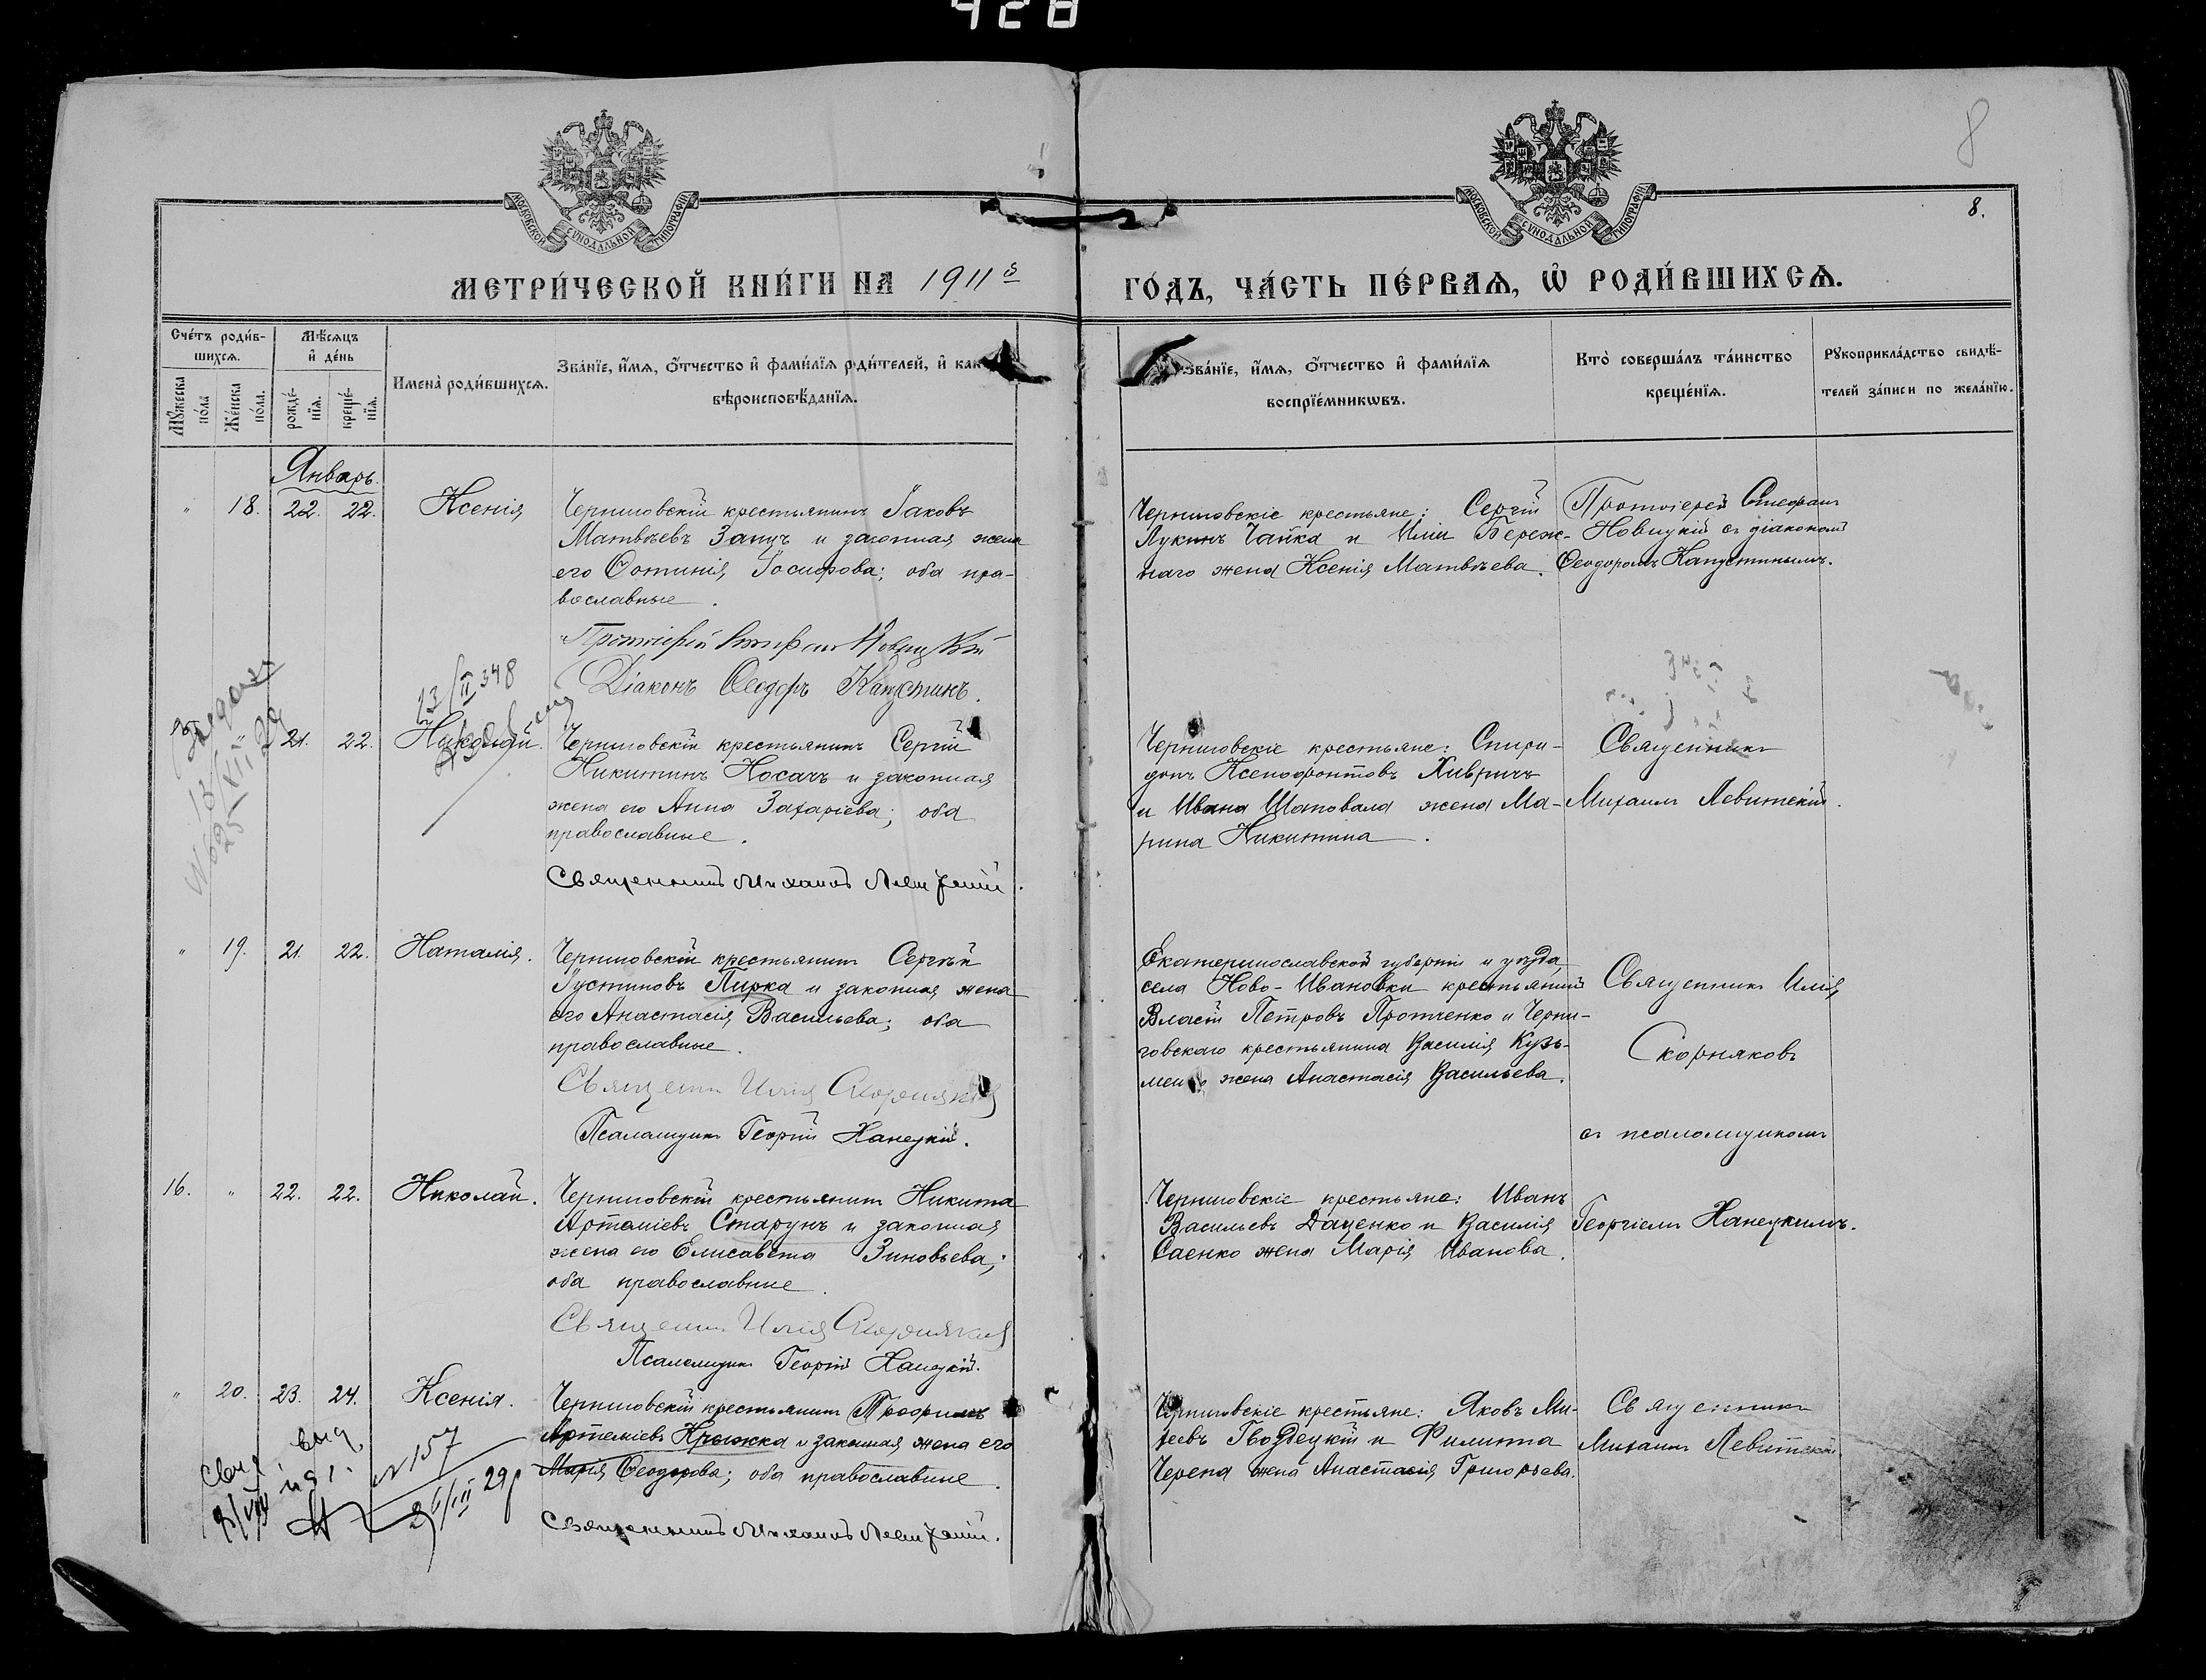 428
8
8.
МОСКОВСКОЙ СѴНОДАЛЬНОЙ ТИПОГРАФІИ
МОСКОВСКОЙ СѴНОДАЛЬНОЙ ТИПОГРАФІИ
МЕТРИ́ЧЕСКОЙ КНИ́ГИ НА 1911й
ГО́ДЪ, ЧА́СТЬ ПЕ́РВАѦ, Ѡ҆ РОДИ́ВШИХСѦ.
Сче́тъ роди́в-
шихсѧ.
Мꙋ́жеска
по́ла
Же́нска
по́ла.
Мѣ́сѧцъ
и҆ де́нь
рожде́-
нїѧ.
креще́-
нїѧ.
Имена̀ роди́вшихсѧ.
Зва́нїе, и҆́мѧ, ѻ҆́тчество и҆ фами́лїѧ роди́телей, и҆ как
вѣроисповѣ́данїѧ.
Зва́нїе, и҆́мѧ, ѻ҆́тчество и҆ фами́лїѧ
воспрїе́мникѡвъ.
Кто̀ соверша́лъ та́инство
креще́нїѧ.
Рꙋкоприкла́дство свидѣ́-
телей за́писи по жела́нїю.
Январь.
" 18. 22. 22. Ксенія
Черниговскій крестьянинъ Іаковъ
Матвѣевъ Заяцъ и законная жена
его Фотинія Іосифова; оба пра-
вославные.
Протоіерей Стефан Новицкій
Діаконъ Ѳеодоръ Капустинъ.
Черниговскіе крестьяне: Сергій
Лукинъ Чайка и Иліи Береж-
наго жена Ксенія Матвѣева.
Протоіерей Стефанъ
Новицкій съ діакономъ
Ѳеодоромъ Капустинымъ.
13/II 348
" 21. 22. Николай.
Черниговскій крестьянинъ Сергій
Никитинъ Носачъ и законная
жена его Анна Захаріева; оба
православные.
Священникъ Михаилъ Левитскій.
Черниговскіе крестьяне: Спири-
донъ Ксенофонтовъ Хивричъ
и Ивана Шаповала жена Ма-
рина Никитина.
Священникъ
Михаилъ Левитскій.
" 19. 21. 22. Наталія.
Черниговскій крестьянинъ Сергѣй
Іустиновъ Пирка и законная жена
его Анастасія Васильева; оба
православные.
Священникъ Илія Скорняковъ
Псаломщикъ Георгій Ханецкій.
Екатеринославской губерніи и уѣзда,
села Ново-Ивановки крестьянинъ
Власій Петровъ Протченко и Черни-
говскаго крестьянина Василія Кузь-
мен жена Анастасія Васильева.
Священникъ Илія
Скорняковъ
съ псаломщикомъ
16. " 22. 22. Николай.
Черниговскій крестьянинъ Никита
Артеміевъ Старунъ и законная
жена его Елисавета Зиновьева;
оба православные.
Священникъ Илія Скорняковъ
Псаломщикъ Георгій Ханецкій.
Черниговскіе крестьяне: Иванъ
Васильевъ Даценко и Василія
Саенко жена Марія Иванова.
Георгіемъ Ханецкимъ.
" 20. 23. 24. Ксенія.
Черниговскій крестьянинъ Трофимъ
Артеміевъ Крыжка и законная жена его
Марія Ѳеодорова; оба православные.
Священникъ Михаилъ Левитскій.
Черниговскіе крестьяне: Яковъ Ми-
хеевъ Гвоздецкій и Филиппа
Черепа жена Анастасія Григорьева.
Священникъ
Михаилъ Левитскій.
выд.
№ 157
26/III 29р